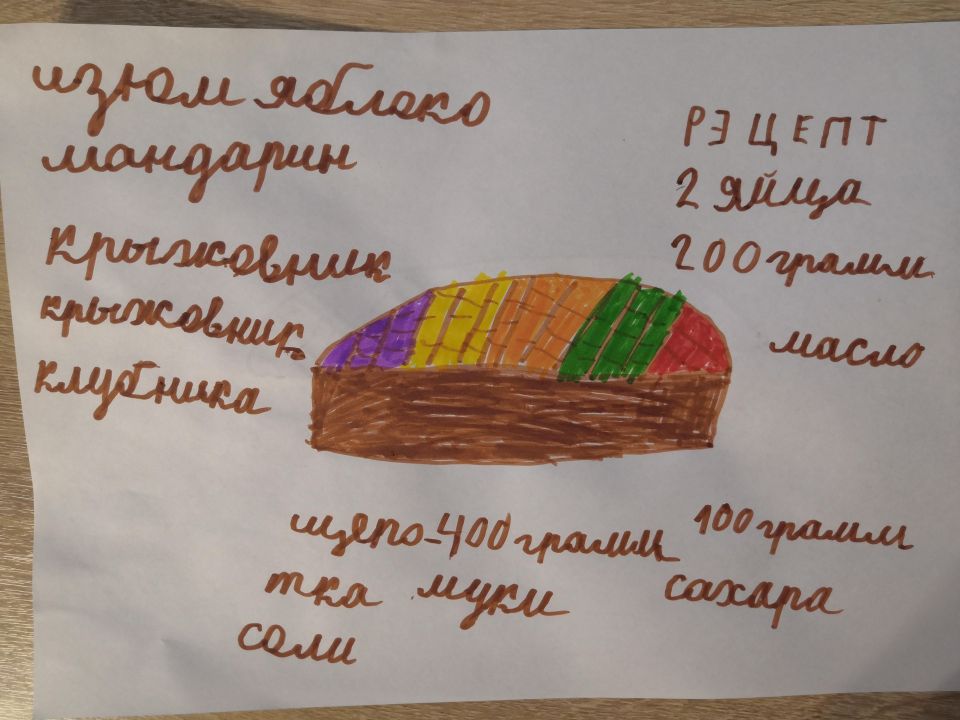 изюм яблоко
мандарин
крыжовник
крыжовник
клубника
РЭЦЕПТ
2 яйца
200 грамм
масло
щепо-
тка
соли
400 грамм
муки
100 грамм
сахара